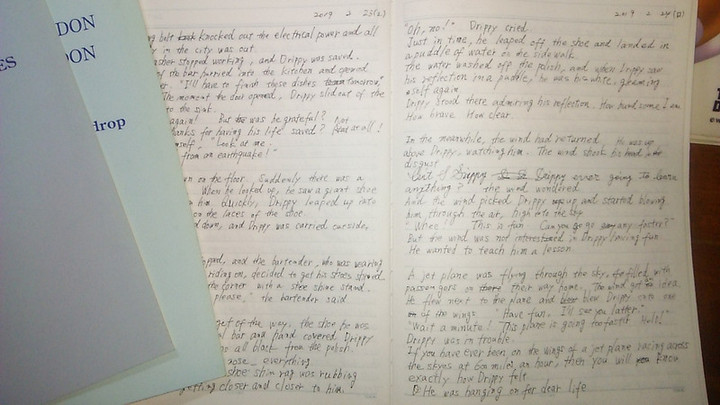 DON
ES
DON
drop
2019 2 23(2)
ng bolt knocked out the electrical power and all
y in the city was out.
asher stopped working, and Drippy was saved.
f the bar hurried into the kitchen and opened
er. "I'll have to finish these dishes tomorrow,"
The moment the door opened, Drippy slid out of the
to the sink.
again! But was he grateful? Not
thanks for having his life saved? Not at all!
mself, "Look at me,
from an earthquake!"
n on the floor. Suddenly there was a
When he looked up, he saw a giant shoe
him. Quickly, Drippy leaped up into
on the laces of the shoe.
down, and Drippy was carried outside,
pped, and the bartender, who was wearing
riding on, decided to get his shoes shined.
the corner with a shoe shine stand.
please," the bartender said
get of the way. the shoe he was
and covered Drippy
s all black from the polish.
nose, everything.
shoe shin rag was rubbing
getting closer and closer to him
2019 2 24(D)
"Oh, no!" Drippy cried.
Just in time, he leaped off the shoe and landed in
a puddle of water on the sidewalk.
the water washed off the polish, and when Drippy saw
his reflection in a puddle, he was his white, gleaming
self again
Drippy stood there admiring his reflection. How handsome I am
How brave How clear.
In the meanwhile, the wind had returned. He was up
above Drippy, watching him. The wind shook his head in
disgust
Drippy ever going to learn
anything?" the wind wondered.
And the wind picked Drippy up and started blowing
him through the air, high into the sky
"Whee! This is fun. Can you go any faster?"
But the wind was not interested in Drippy having fun.
He wanted to teach him a lesson.
A jet plane was flying through the sky, filled with
passengers on their way home. The wind got idea.
He flew next to the plane and blew Drippy onto one
of the wings. "Have fun. I'll see you latter."
"Wait a minute! This plane is going too fast. Help!"
Drippy was in trouble.
If you have ever been on the wings of a jet plane racing across
the skyes at 600 miles, an hour, then you will know
exactly how Drippy felt
He was hanging on for dear life